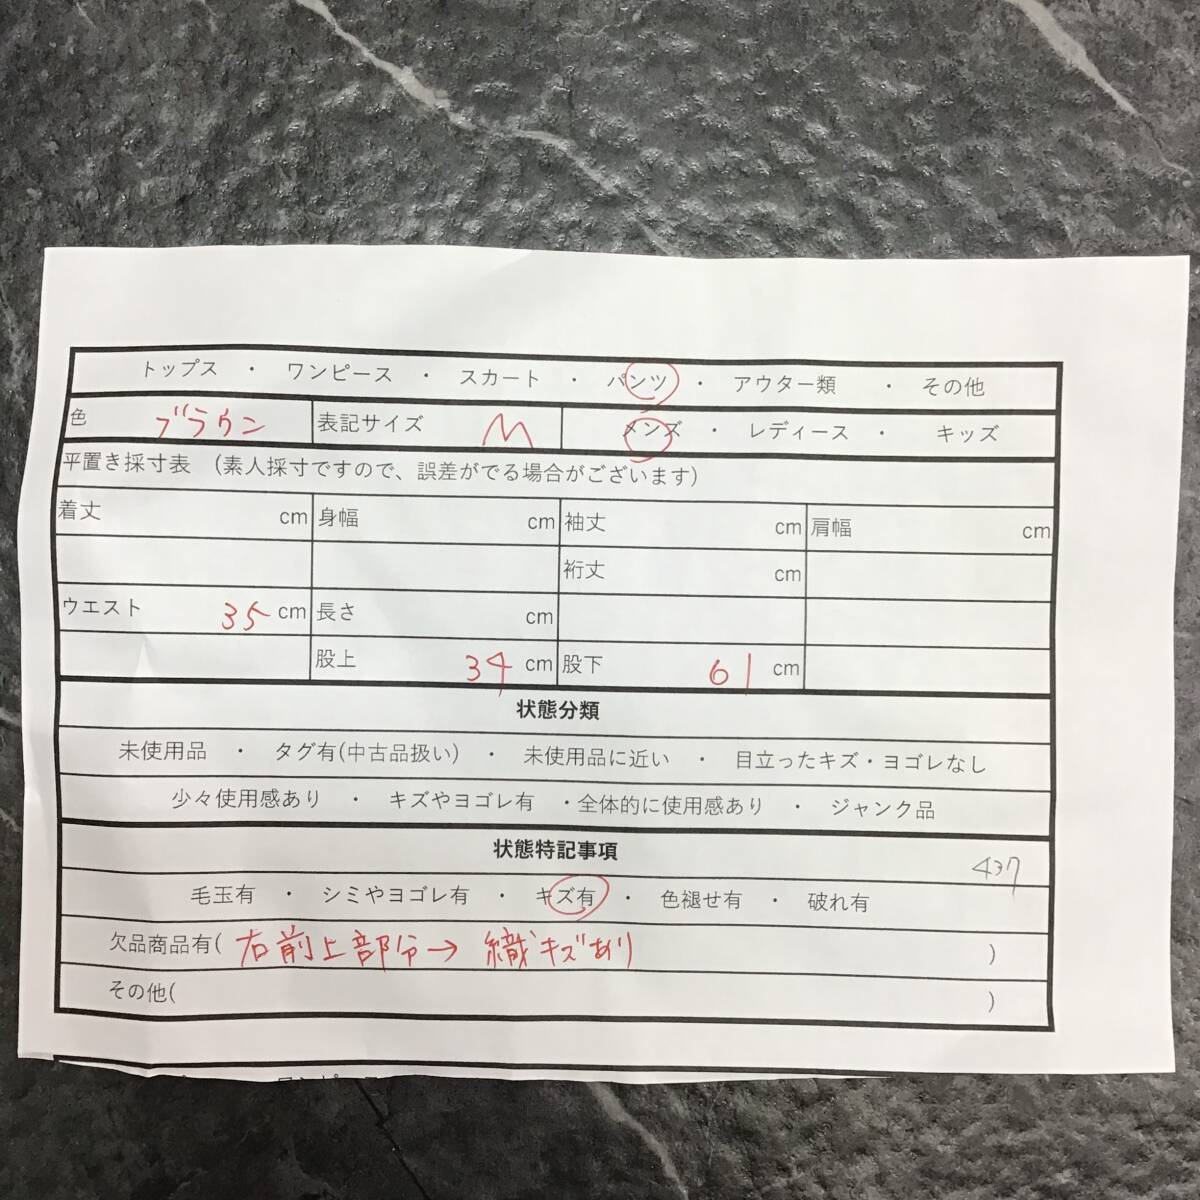 トップス ・ ワンピース ・ スカート ・ パンツ ・ アウター類 ・ その他
色 ブラウン 表記サイズ M メンズ ・ レディース ・ キッズ
平置き採寸表 (素人採寸ですので、誤差がでる場合がございます)
着丈 cm 身幅 cm 袖丈 cm 肩幅 cm
裄丈 cm
ウエスト 35 cm 長さ cm
股上 34 cm 股下 61 cm
状態分類
未使用品 ・ タグ有(中古品扱い) ・ 未使用品に近い ・ 目立ったキズ・ヨゴレなし
少々使用感あり ・ キズやヨゴレ有 ・全体的に使用感あり ・ ジャンク品
状態特記事項 437
毛玉有 ・ シミやヨゴレ有 ・ キズ有 ・ 色褪せ有 ・ 破れ有
欠品商品有( 右前上部分→ 織キズあり )
その他( )